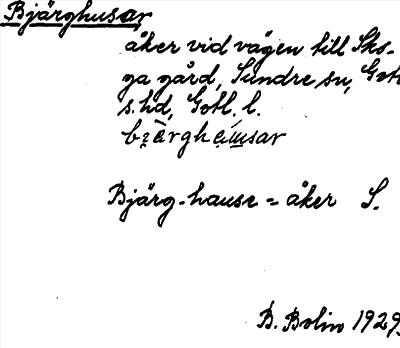 Bjärghusar
åker vid vägen till Sks-
ga gård, Sundre sn, Goth
s. hd, Gotl. l.
Bjärg-hause = åker S.
B. Bolin 1929.